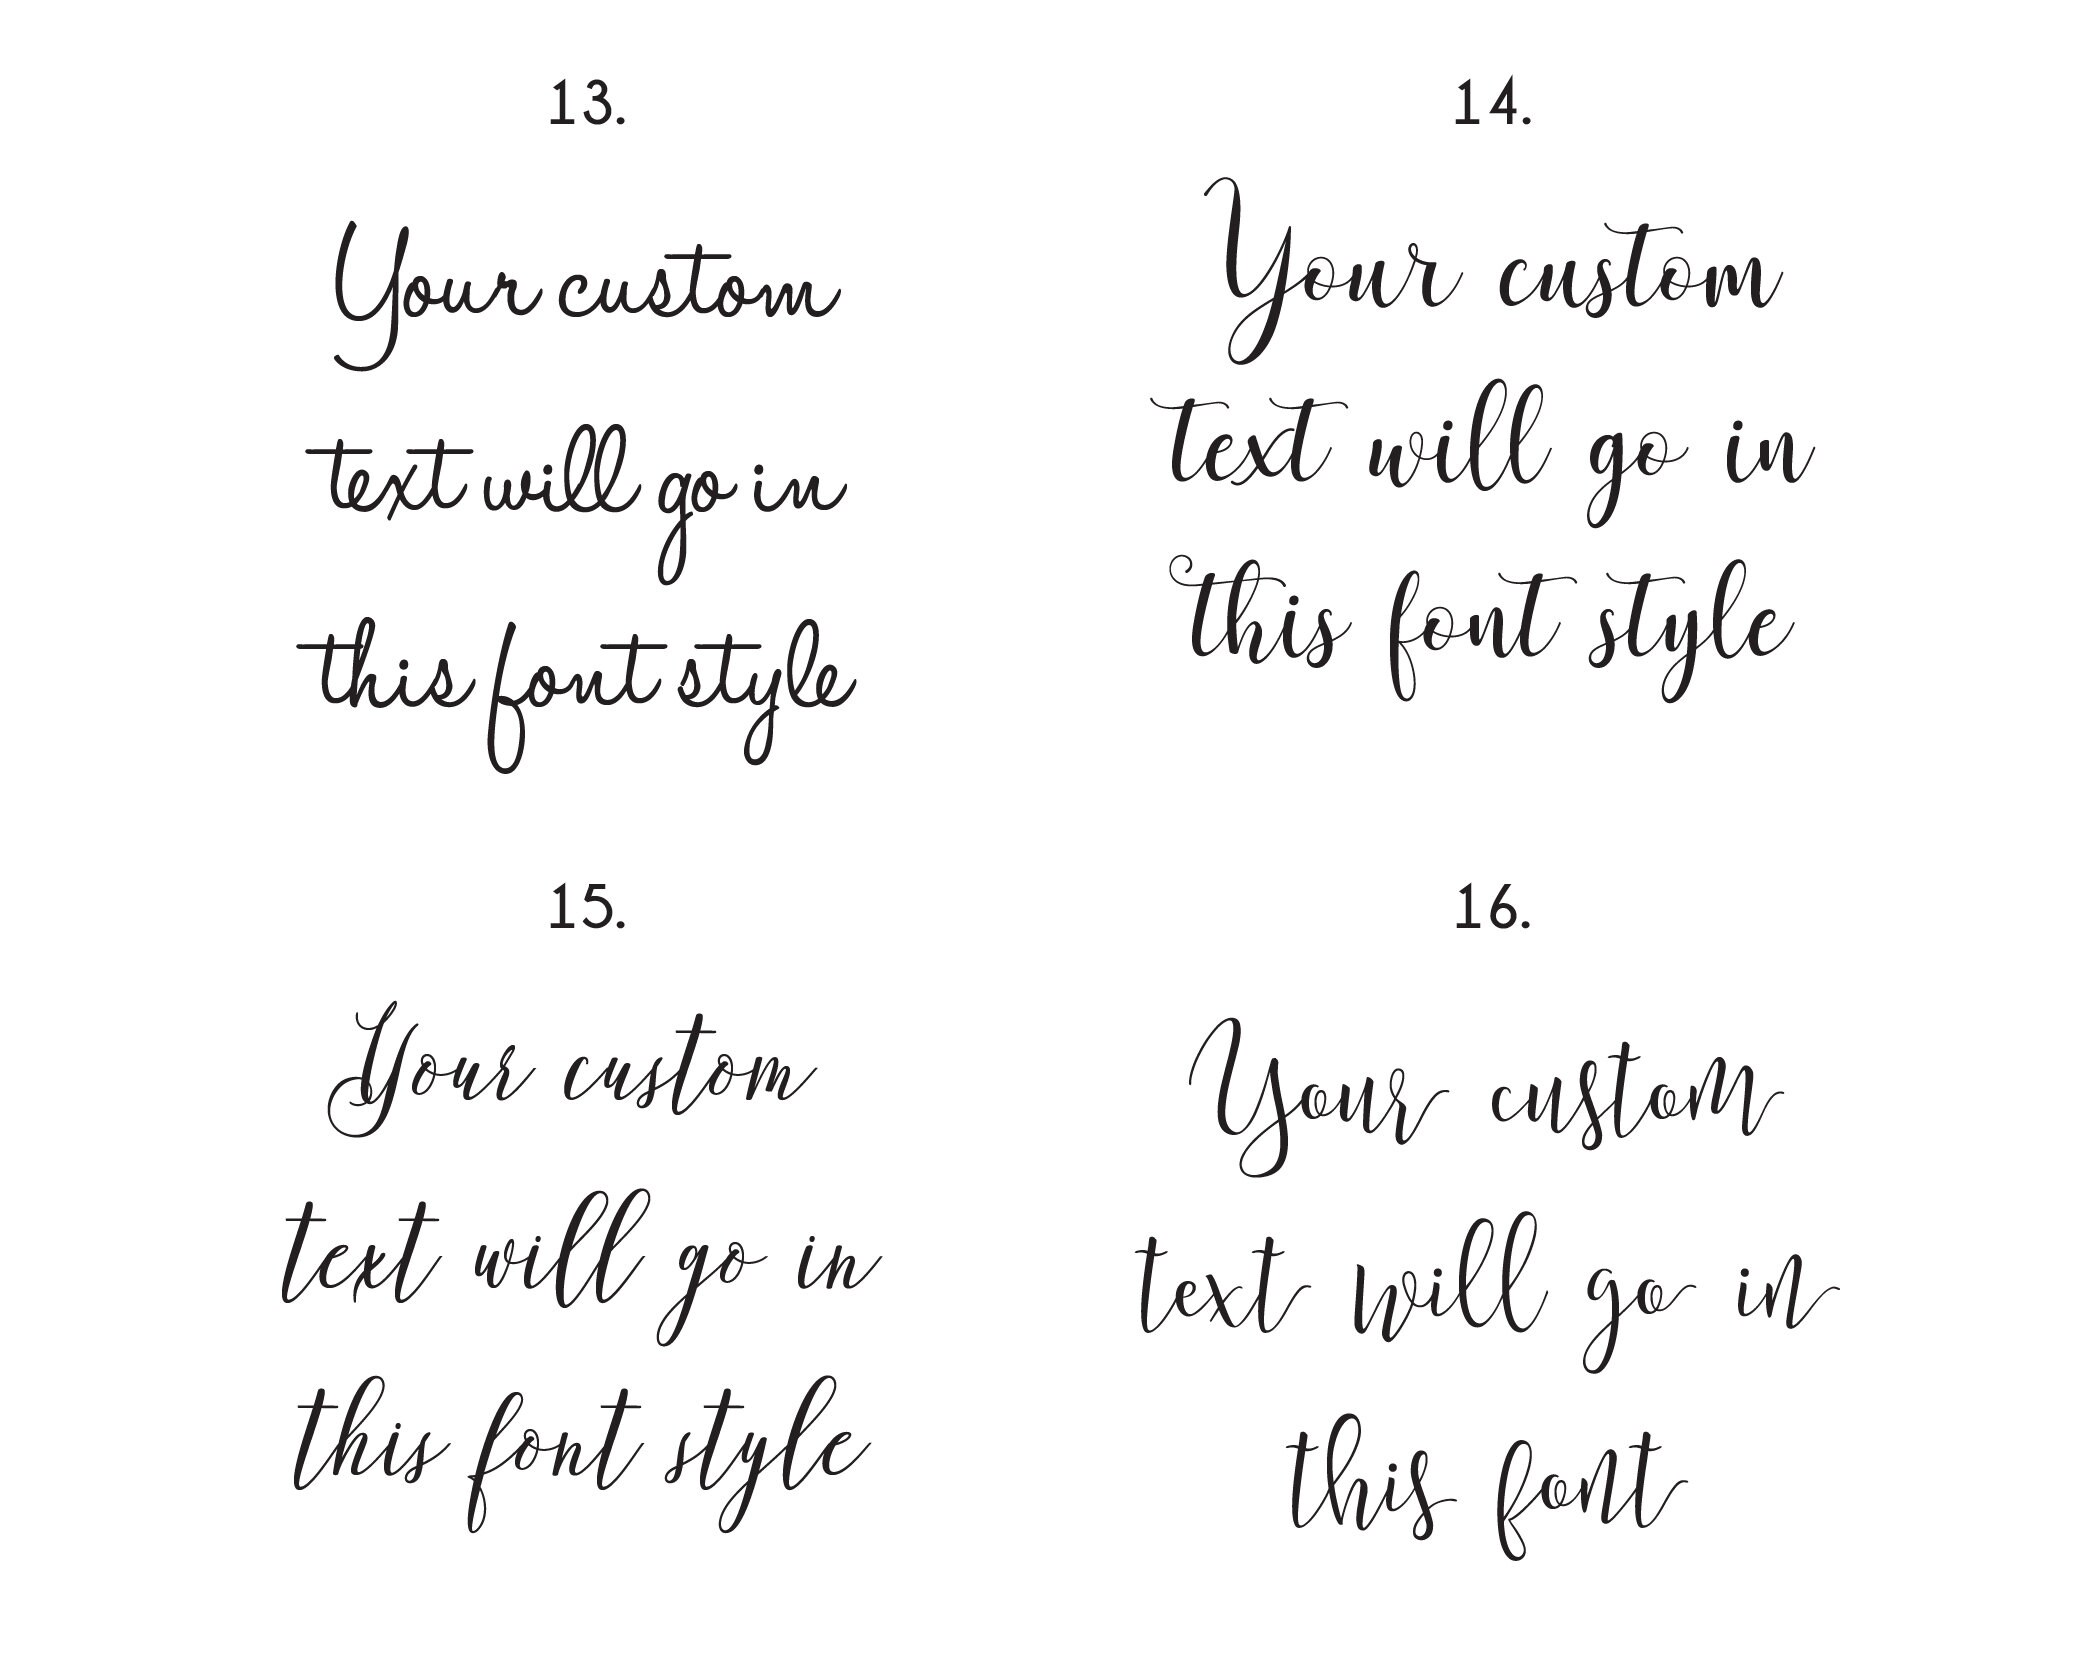 13.
Your custom
text will go in
this font style
14.
Your custom
text will go in
this font style
15.
Your custom
text will go in
this font style
16.
Your custom
text will go in
this font